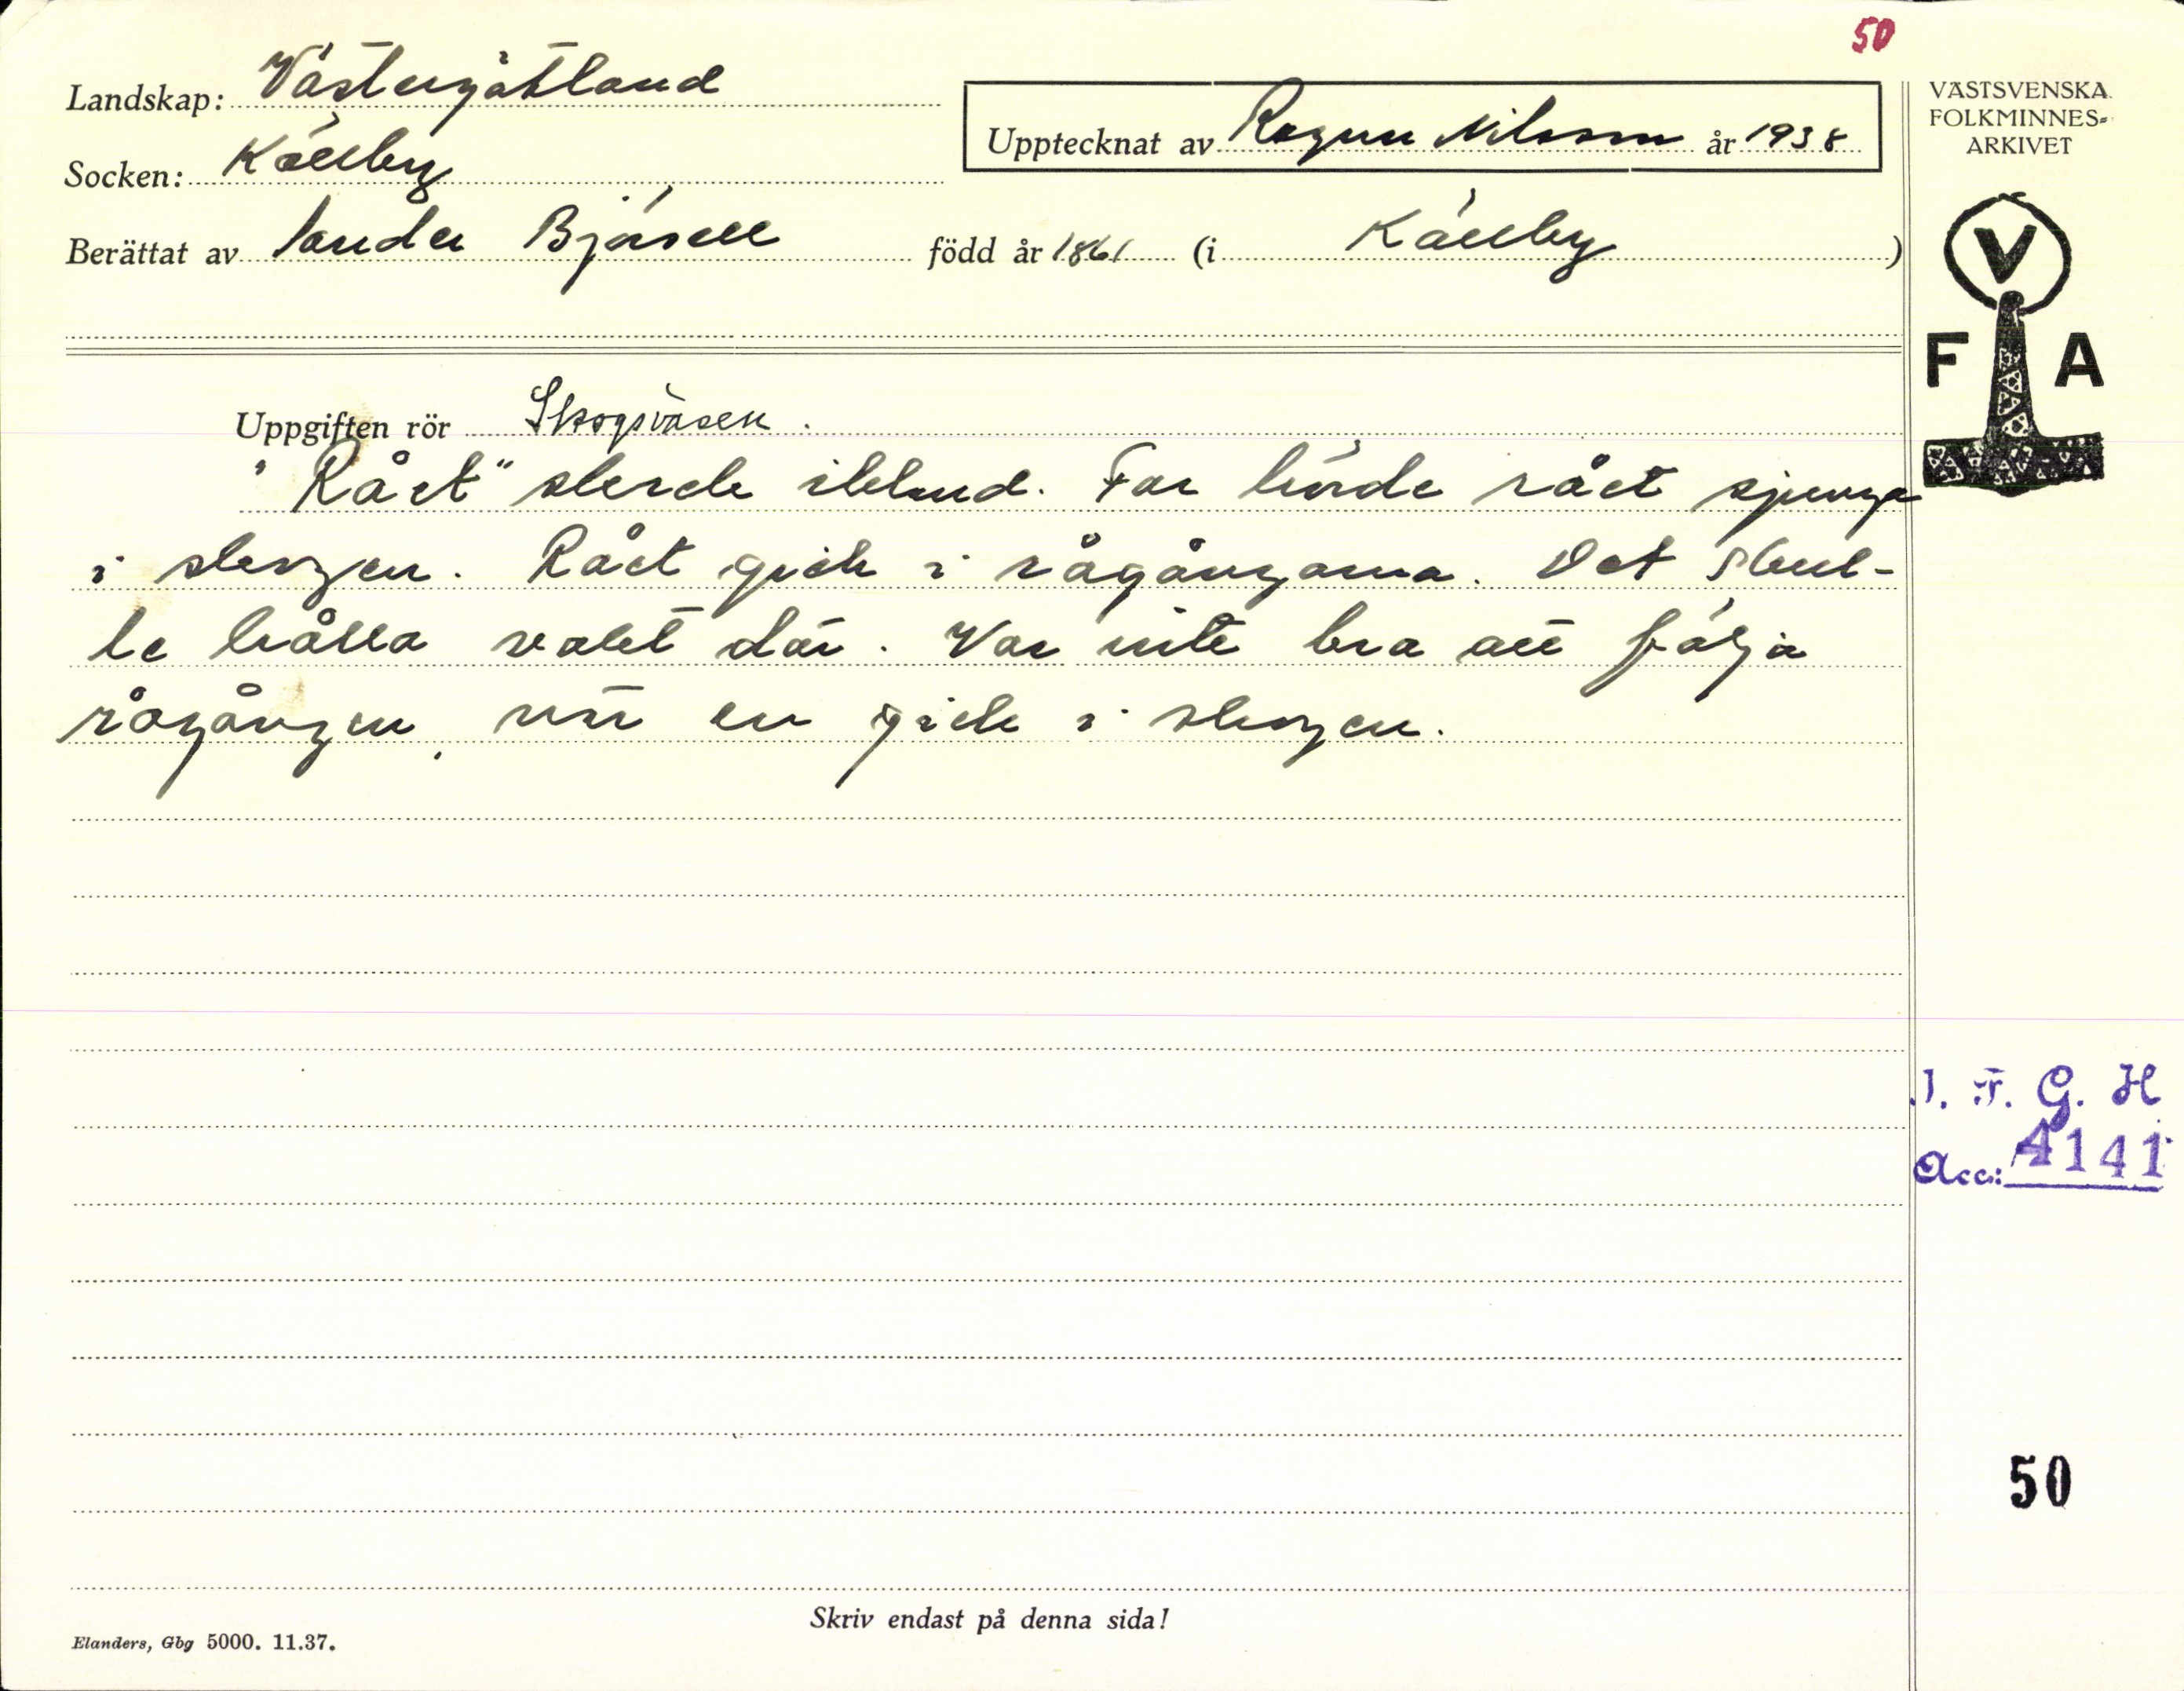 50
Landskap: Västergötland
Upptecknat av Ragnar Nilsson år 1938
VÄSTSVENSKA
FOLKMINNES-
ARKIVET
Socken: Källby
Berättat av Sander Björsell född år 1861 (i Källby)
V
F A
Uppgiften rör Skogsväsen.
"Rået" skrek ibland. Far hörde rået sjunga
i skogen. Rået gick i rågångarna. Det skul-
le hålla vakt där. Var inte bra att följa
rågången, när en gick i skogen.
I. F. G. H
Acc: 4141
50
Skriv endast på denna sida!
Elanders, Gbg 5000. 11.37.